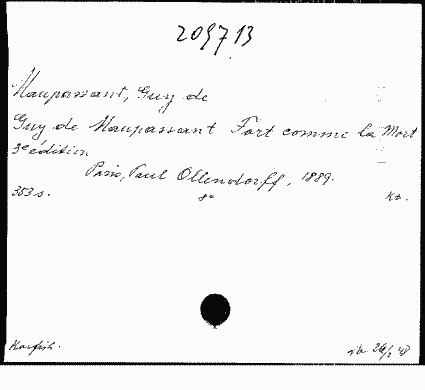 209713
Maupassant, Guy de
Guy de Maupassant Fort comme la Mort
3e édition
Paris, Paul Ollendorff, 1889.
353 s. 8° Ko.